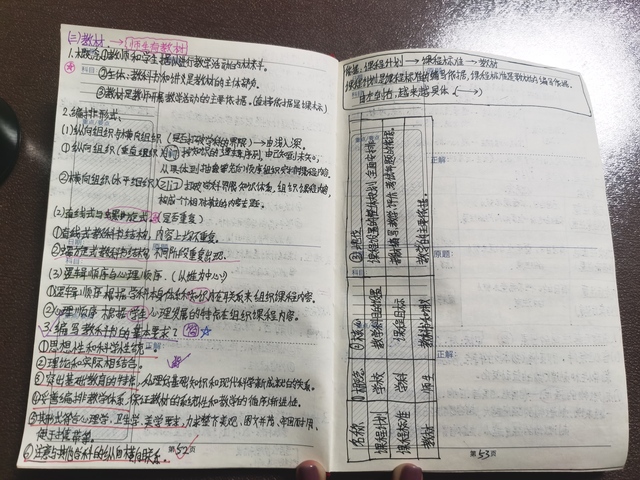 (三)教材 → 师生与教材
1.概念①教师和学生据以进行教学活动的材料。
②主体：教科书和讲义是教材的主体部分。
③教材是教师开展教学活动的主要依据。(直接依据是课标)
2.编排形式：
(1)纵向组织与横向组织(是否打破学科的界限)→由浅入深。
①纵向组织(垂直组织)
从具体到抽象等先后顺序组织安排课程内容。
②横向组织(水平组织)打破学科界限和知识体系，组织课程内容，
构成一个相对独立的内容主题。
(2)直线式与螺旋式。(是否重复)
①直线式教科书结构，内容上均不重复。
②螺旋式教科书结构，不同阶段重复出现。
(3)逻辑顺序与心理顺序。(以谁为中心)
①逻辑顺序 根据学科本身的体系和知识内在联系来组织课程内容。
②心理顺序 根据学生心理发展的特点组织课程内容。
3.编写教科书的基本要求？
①思想性和科学性统一。
②理论和实际相结合。
③突出基础教育的特点，处理好基础知识和现代科学新成就的关系。
④妥善编排教学体系，保证教材的系统性和教学的循序渐进性。
⑤其形式符合心理学、卫生学、美学要求，力求整齐美观、图文并茂、牢固耐用、
便于学生携带。
⑥注意与其他学科的纵向横向联系。
第52页
依据：课程计划 → 课程标准 → 教材
课程计划是课程标准的编写依据，课程标准是教材的编写依据。
自上到下，越来越具体。(→)
名称 概念 核心 地位
课程计划 学校 教学科目的设置 课程设置的整体规划
课程标准 学科 课程目标 教材编写、教学、评估、考试命题的依据。
教材 师生 教科书和讲义 教学的主要依据。
正解
原题：
正解
第53页